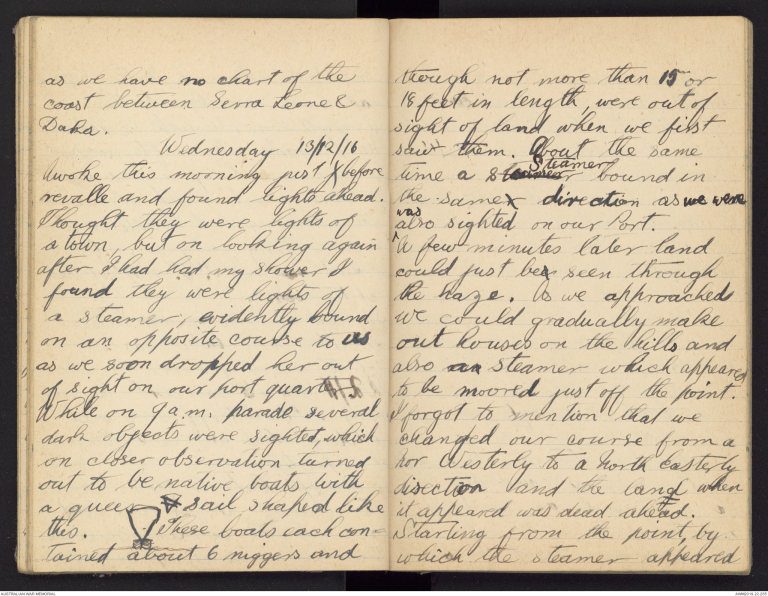 as we have no chart of the
coast between Serra Leone &
Daka.
Wednesday 13/12/16
Awoke this morning just before
revalle and found lights ahead.
Thought they were lights of
a town, but on looking again
after I had had my shower I
found they were lights of
a steamer, evidently bound
on an opposite course to us
as we soon dropped her out
of sight on our port quarter.
While on 9 a.m. parade several
dark objects were sighted, which
on closer observation turned
out to be native boats with
a queer sail shaped like
this. These boats each con-
tained about 6 niggers and
though not more than 15 or
18 feet in length, were out of
sight of land when we first
saw them. About the same
time a Steamer bound in
the same direction as we were
was
also sighted on our Port.
A few minutes later land
could just be seen through
the haze. As we approached
we could gradually make
out houses on the hills and
also a steamer which appeared
to be moored just off the point.
I forgot to mention that we
changed our course from a
nor Westerly to a North Easterly
direction and the land when
it appeared was dead ahead.
Starting from the point, by
which the steamer appeared
AUSTRALIAN WAR MEMORIAL